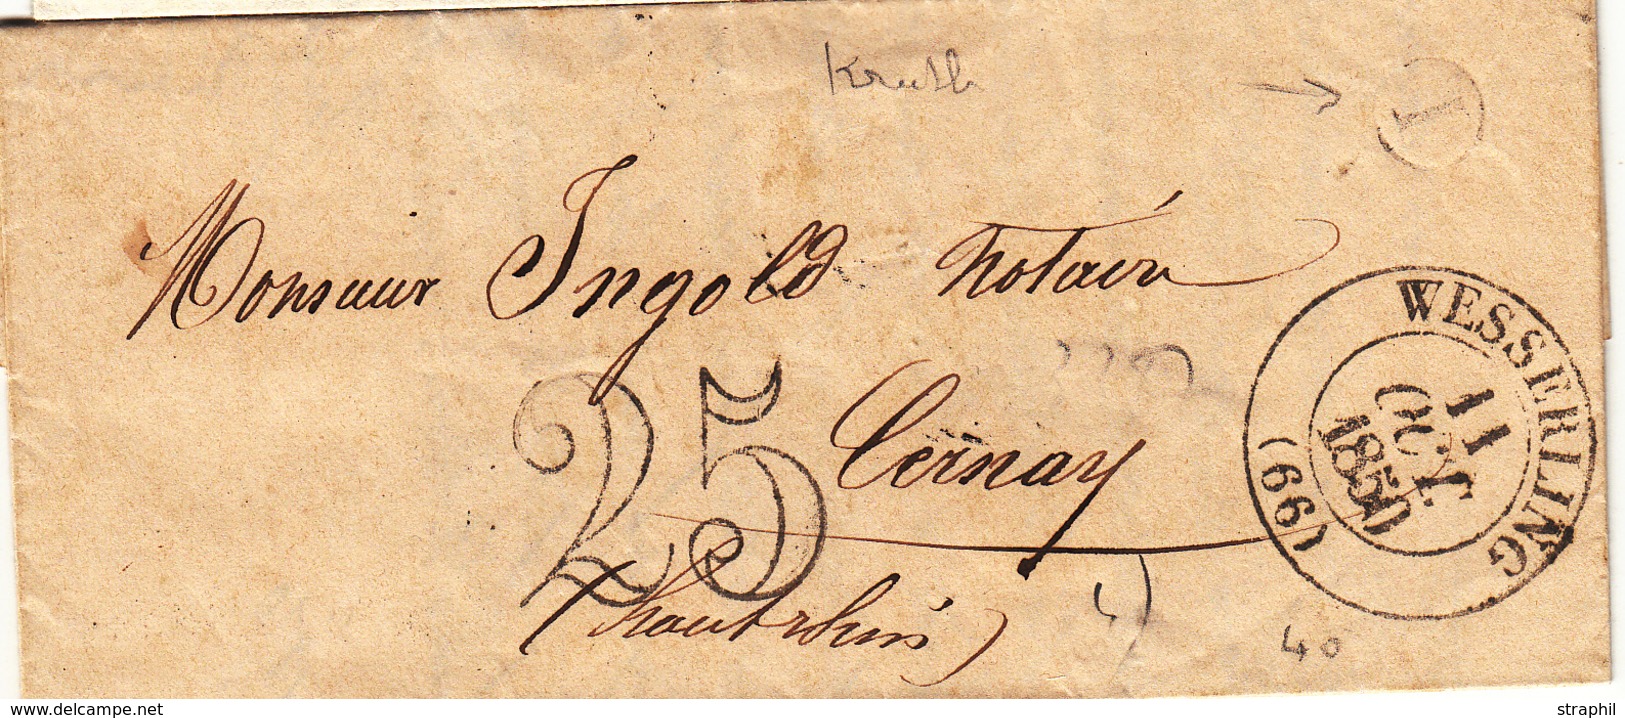 Kruth
Monsieur Ingold notaire
Cernay
25
(haut rhin)
WESSERLING
11
OCT.
1850
(66)
40
www.delcampe.net
straphil